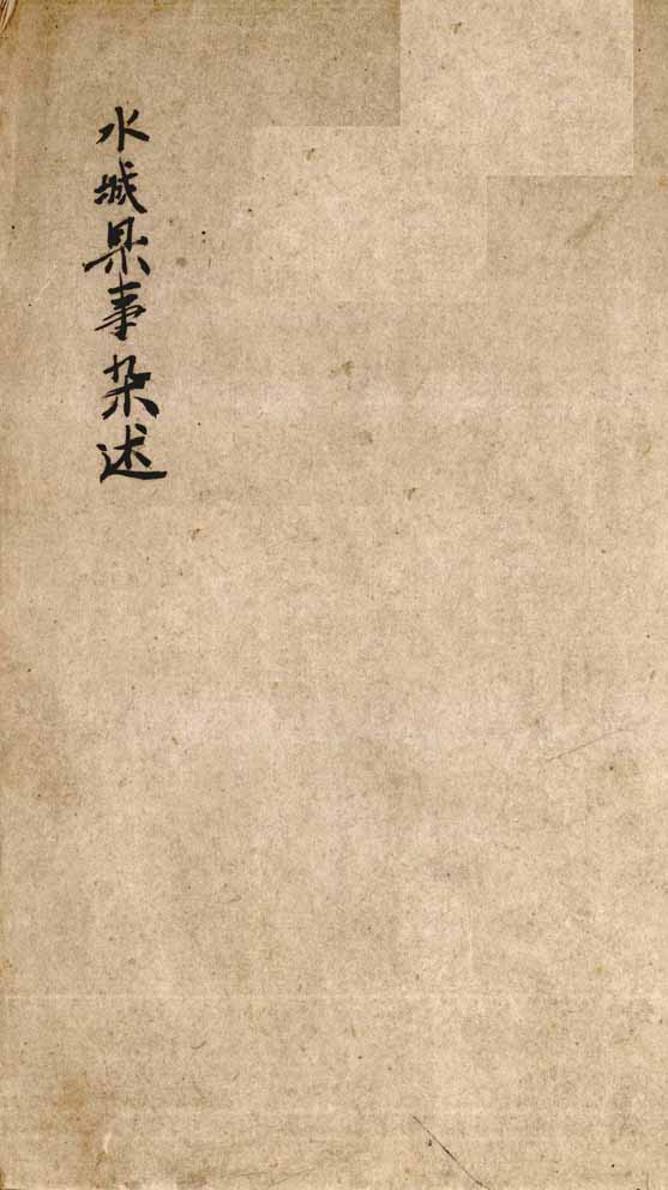 水城県事杂述